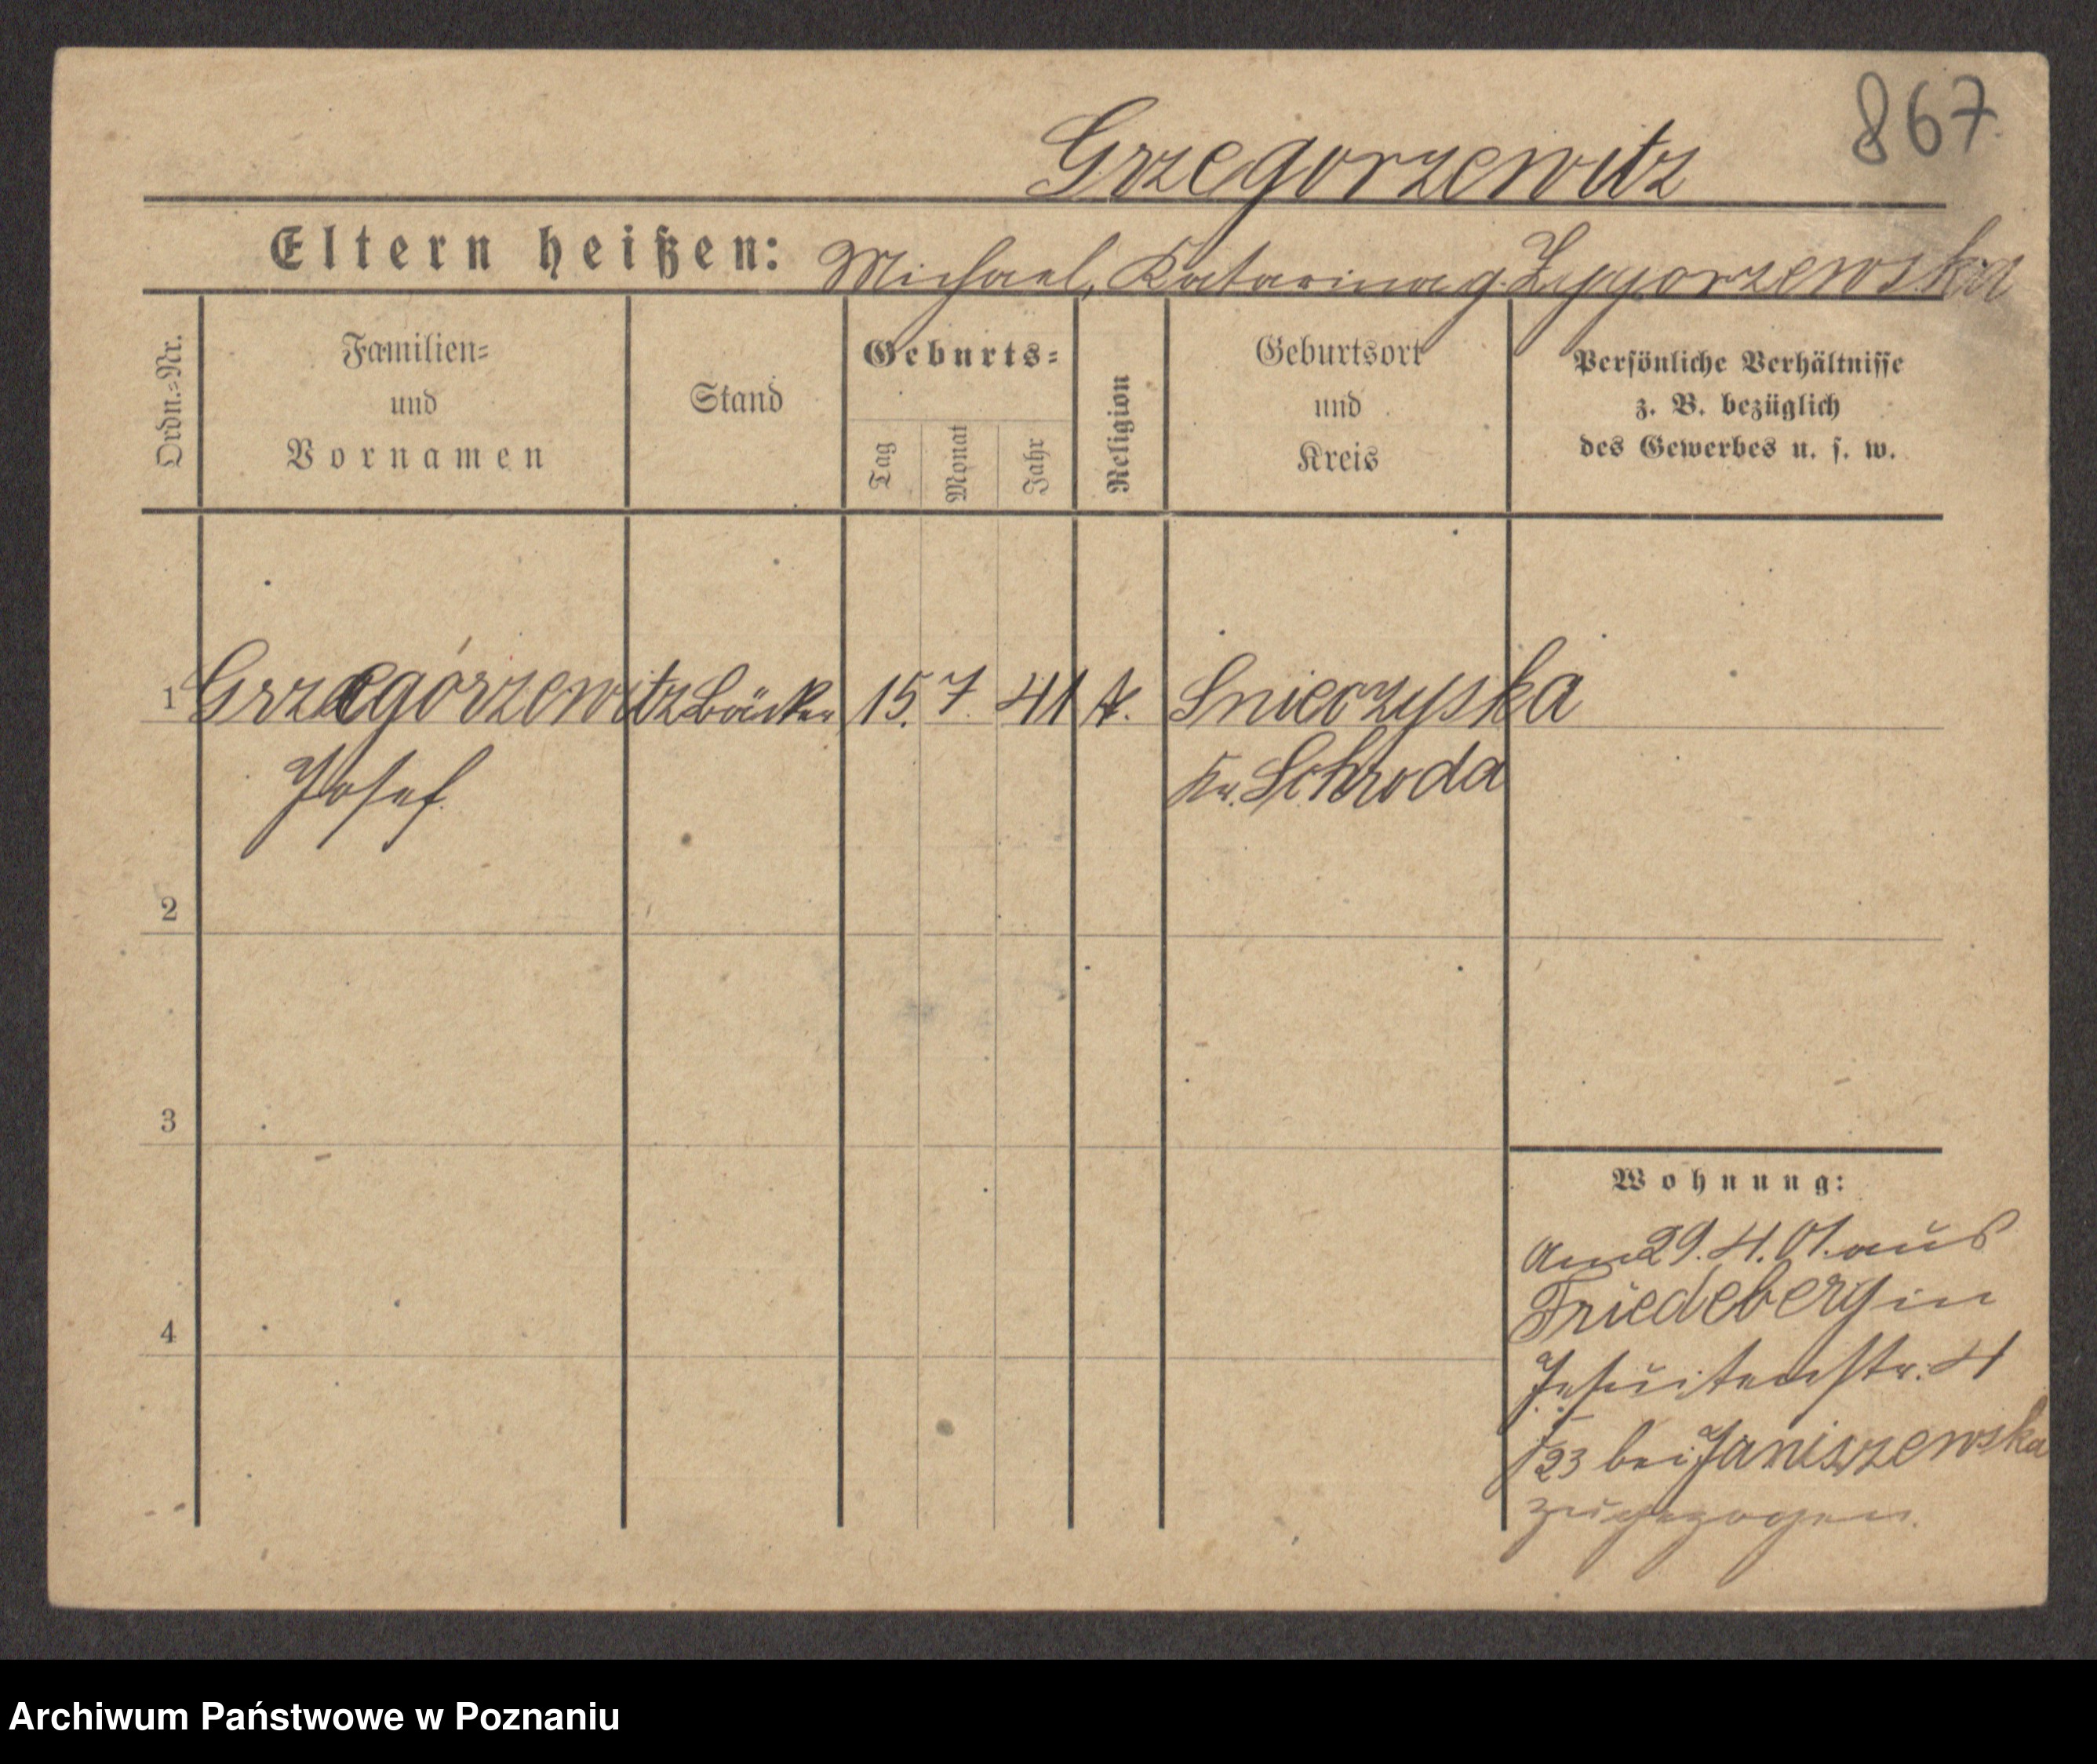 867.
Grzegorzewitz
Eltern heißen: Michael, Katarina g. Zggorzewska
Ordn.=Nr.
Familien=
und
Vornamen
Stand
Geburts=
Tag
Monat
Jahr
Religion
Geburtsort
und
Kreis
Persönliche Verhältnisse
z. B. bezüglich
des Gewerbes u. s. w.
1 Grzegórzewitz Bäcker 15. 7. 41 k. Snieczyska
Josef. Kr. Schroda
2
3
4
Wohnung:
Am 29.4.01. aus
Friedeberg in
Jesuitenstr. 4
bei Janiszewska
zugezogen.
Archiwum Państwowe w Poznaniu